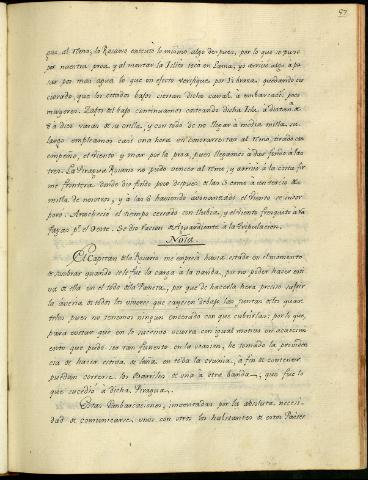 57
que al remo; la Rosario executó lo mismo algo despues, por lo que se puso
por nuestra proa, y al montar la Islita seca en Lima, yo arrivé algo a pa-
sar por mas agua lo que en efecto verifique por 1½ braza, quedando cer-
ciorado, que los citados bajos cierran dicha canal, a embarcacs. poco
mayores. Zafos del bajo continuamos costeando dicha Isla, a distancia
8 a diez varas de su orilla, y con todo de no llegar a media milla su
largo empleamos casi una hora en contrarrestar al remo, tirado con
empeño, el viento y mar por la proa, pues llegamos a dar fondo a las
tres. La Piragua Rosario no pudo vencer al remo, y arrivó a la costa fir-
me frontera donde dio fondo poco despues de las 3 como a un tercio de
milla de nosotros, y a las 6 haviendo abonanzado el viento se incor-
poro. Anochecio el tiempo cerrado con lluvia, y el viento fresquito a ra-
fagas pr. el Oeste. Se dio racion de Aguardiente a la Tripulacion.
Nota.
El Capitan de la Rosario me expresó havia estado en el momento
de zozobrar quando se le fue la carga a la vanda, por no poder hacer esti-
va de ella en el todo de la Paneta, por que de hacerla hera preciso sufrir
la averia de todos los viveres que cayesen debajo las juntas de los quar-
teles pues no tenemos ningun encerado con que cubrirlas; por lo que,
para evitar que en lo sucesivo ocurra con igual motivo un acaecim-
iento que pudo ser tan funesto en la ocasion, he tomado la providen-
cia de hacer estiva de leña, en toda la crumia, a fin de contener
puedan correrse los Barriles de una a otra banda, que fue lo
que sucedió a dicha Piragua.
Estas Embarcaciones, inventadas por la absoluta necesi-
dad de comunicarse unos con otros los habitantes de estos Paises